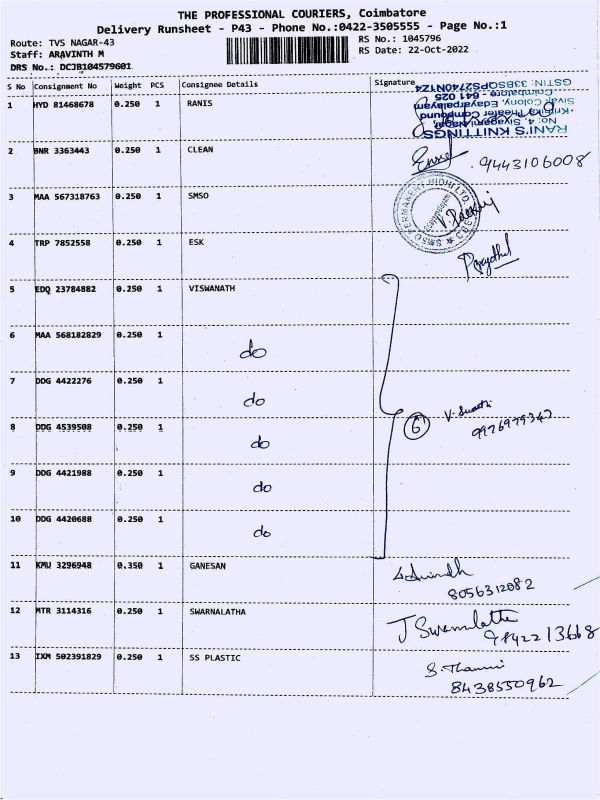 THE PROFESSIONAL COURIERS, Coimbatore
Delivery Runsheet - P43 - Phone No.:0422-3505555 - Page No.:1
Route: TVS NAGAR-43 RS No.: 1045796
Staff: ARAVINTH M RS Date: 22-Oct-2022
DRS No.: DCJB104579601
S No Consignment No Weight PCS Consignee Details Signature
1 HYD 81468678 0.250 1 RANIS
RANI'S KNITTINGS
No: 4, Sivagami Nagar,
Kritika Theater Compound
Sivaji Colony, Edayarpalayam
Coimbatore - 641 025
GSTIN: 33BSQPS2740N1Z4
2 BNR 3363443 0.250 1 CLEAN 9443106008
3 MAA 567318763 0.250 1 SMSO
SMSO PERMANENT NIDHI LTD.
4 TRP 7852558 0.250 1 ESK
5 EDQ 23784882 0.250 1 VISWANATH
6 MAA 568182829 0.250 1 do
7 DDG 4422276 0.250 1 do
8 DDG 4539508 0.250 1 do 6 9976979347
9 DDG 4421988 0.250 1 do
10 DDG 4420688 0.250 1 do
11 KMU 3296948 0.350 1 GANESAN
8056312082
12 MTR 3114316 0.250 1 SWARNALATHA J Swarnalatha
9842213668
13 IXM 502391829 0.250 1 SS PLASTIC
8438550962